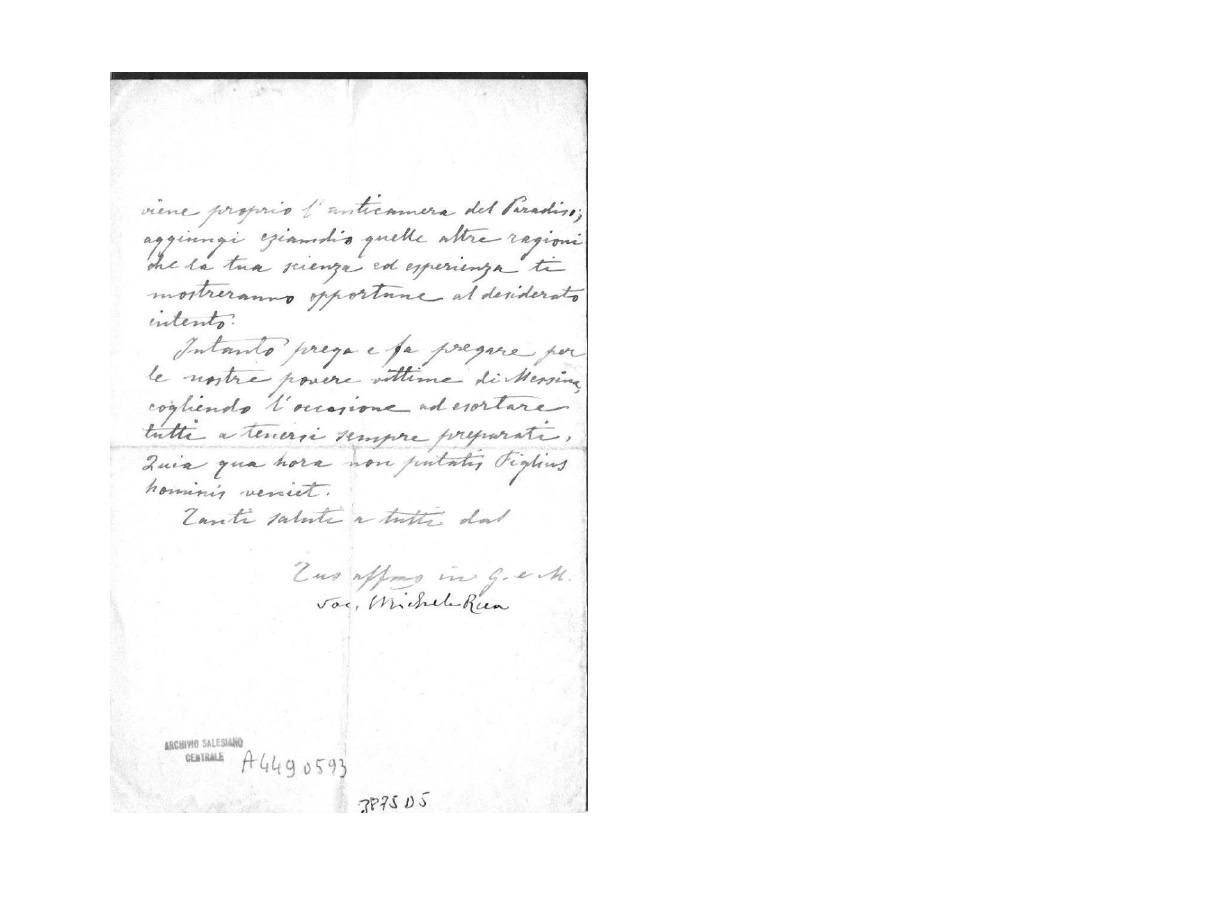 viene proprio l'anticamera del Paradiso;
aggiungi eziandio quelle altre ragioni
che la tua scienza ed esperienza ti
mostreranno opportune al desiderato
intento.
Intanto prega e fa pregare per
le nostre povere vittime di Messina,
cogliendo l'occasione ad esortare
tutti a tenersi sempre preparati,
Quia qua hora non putatis Figlius
hominis veniet.
Tanti saluti a tutti dal
Tuo affmo in G. e M.
Sac. Michele Rua
ARCHIVIO SALESIANO
CENTRALE
A4490593
3875 D5